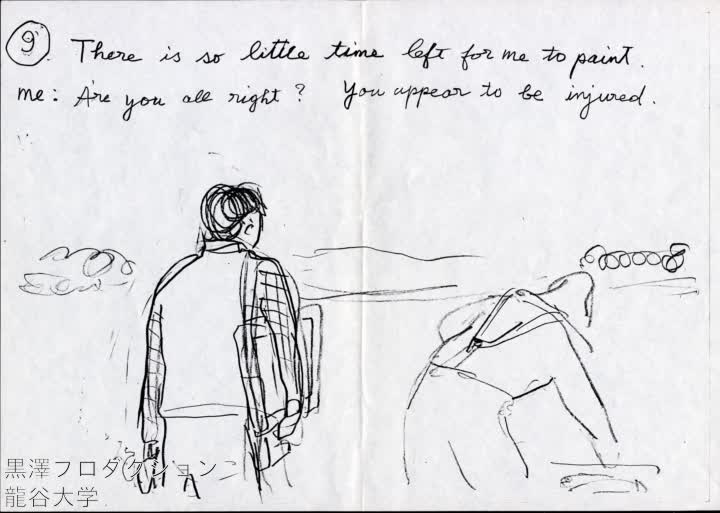 9 There is so little time left for me to paint.
me: Are you all right? You appear to be injured.
黒澤プロダクション
龍谷大学